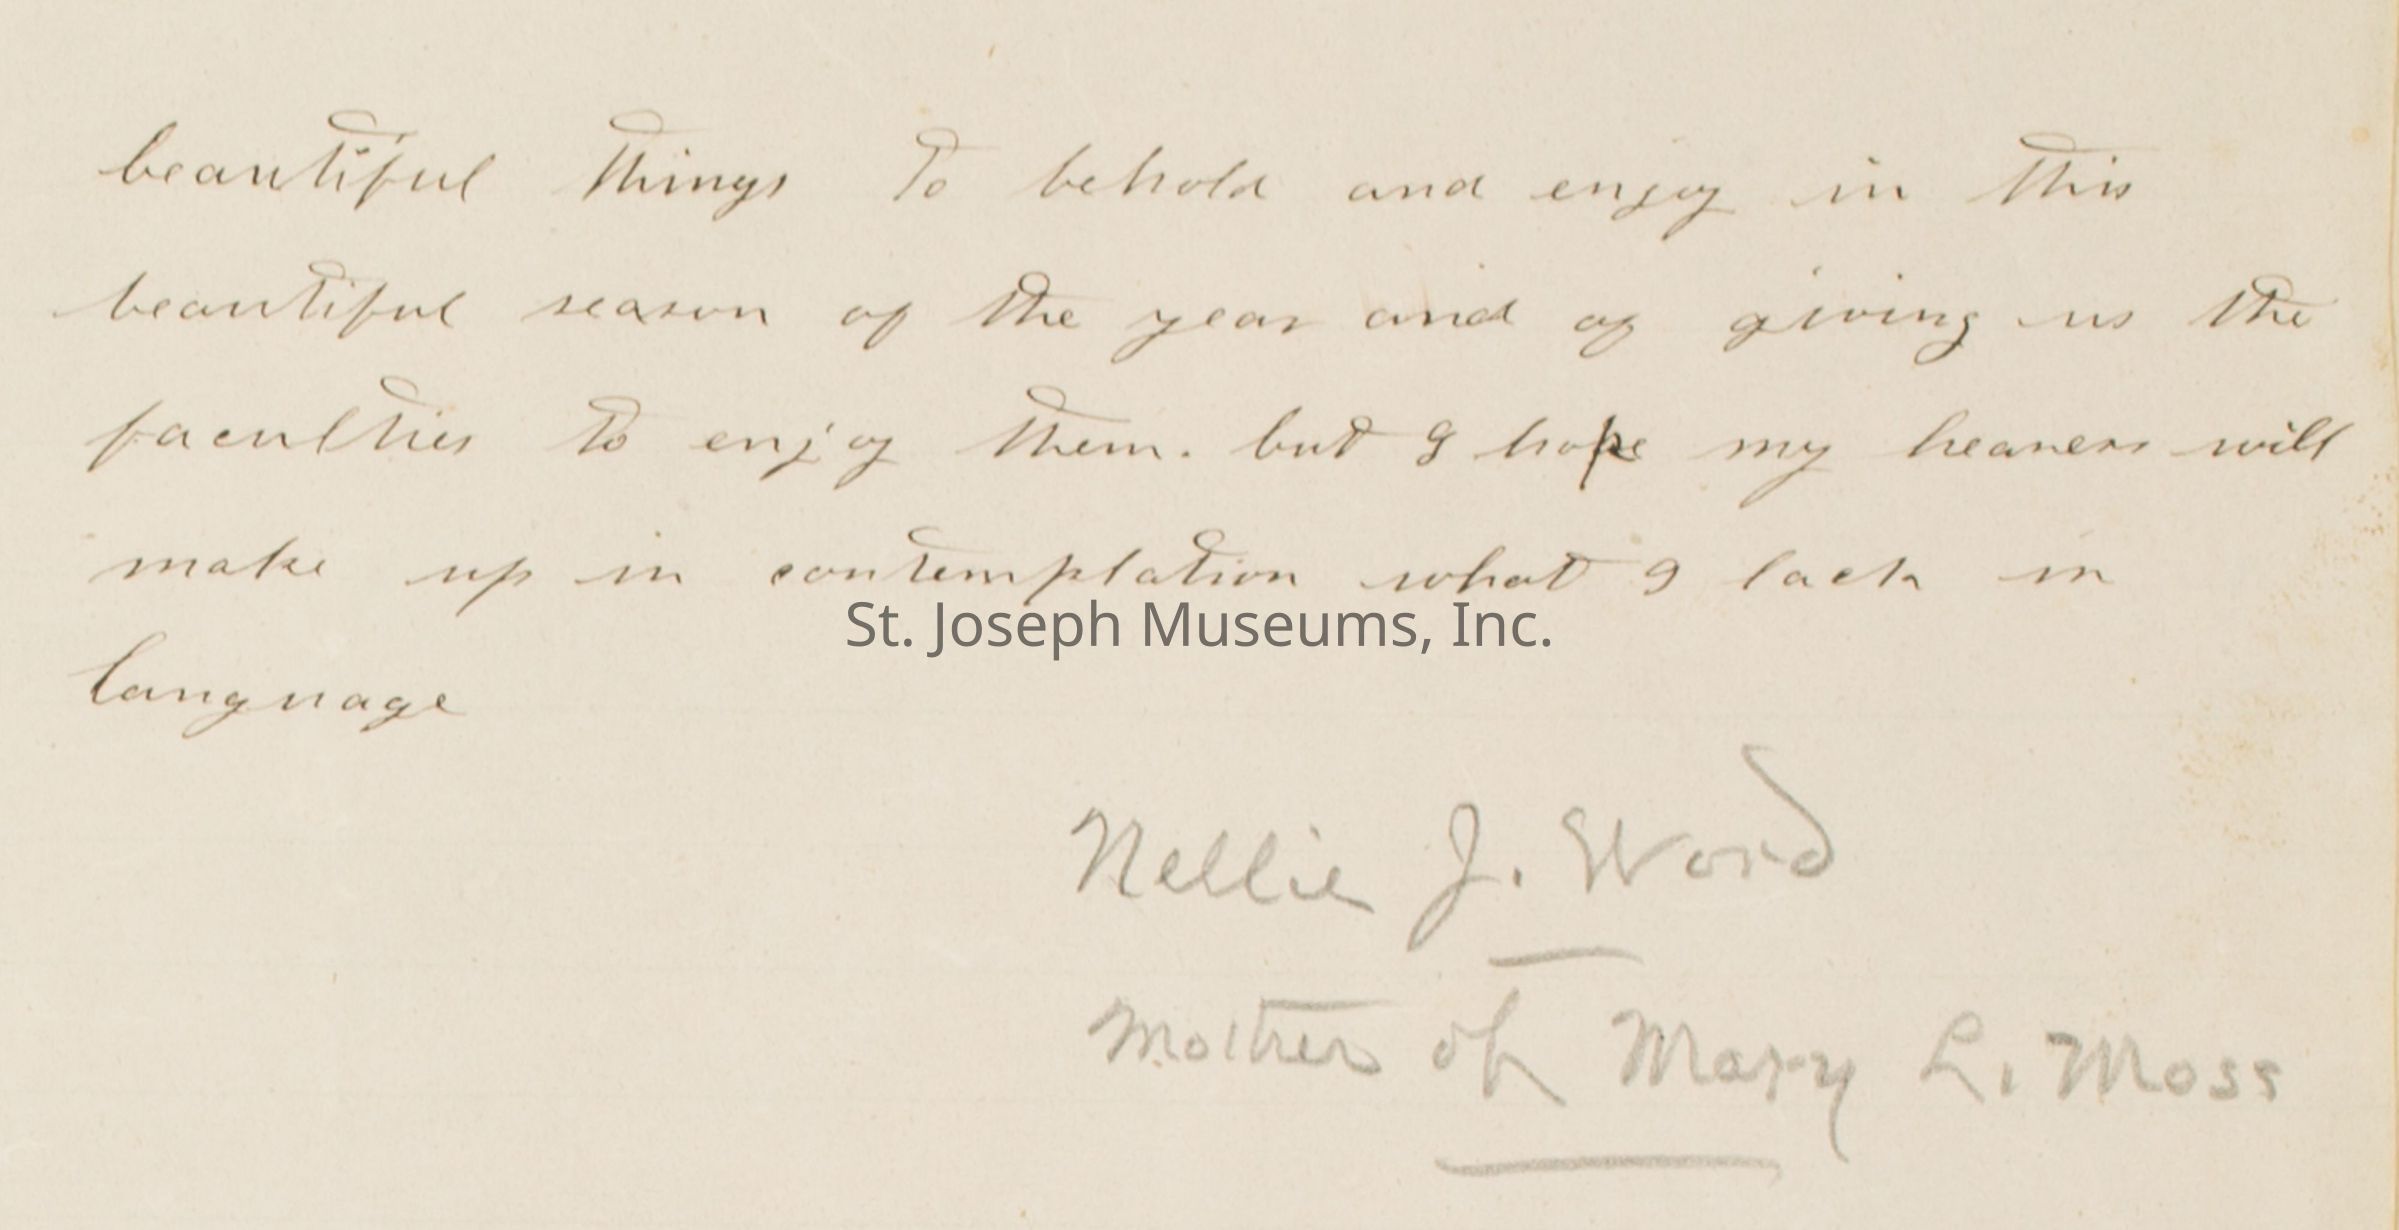 beautiful things to behold and enjoy in this
beautiful season of the year and of giving us the
faculties to enjoy them. but I hope my hearers will
make up in contemplation what I lack in
St. Joseph Museums, Inc.
language
Nellie J. Word
Mother of Mary L. Moss